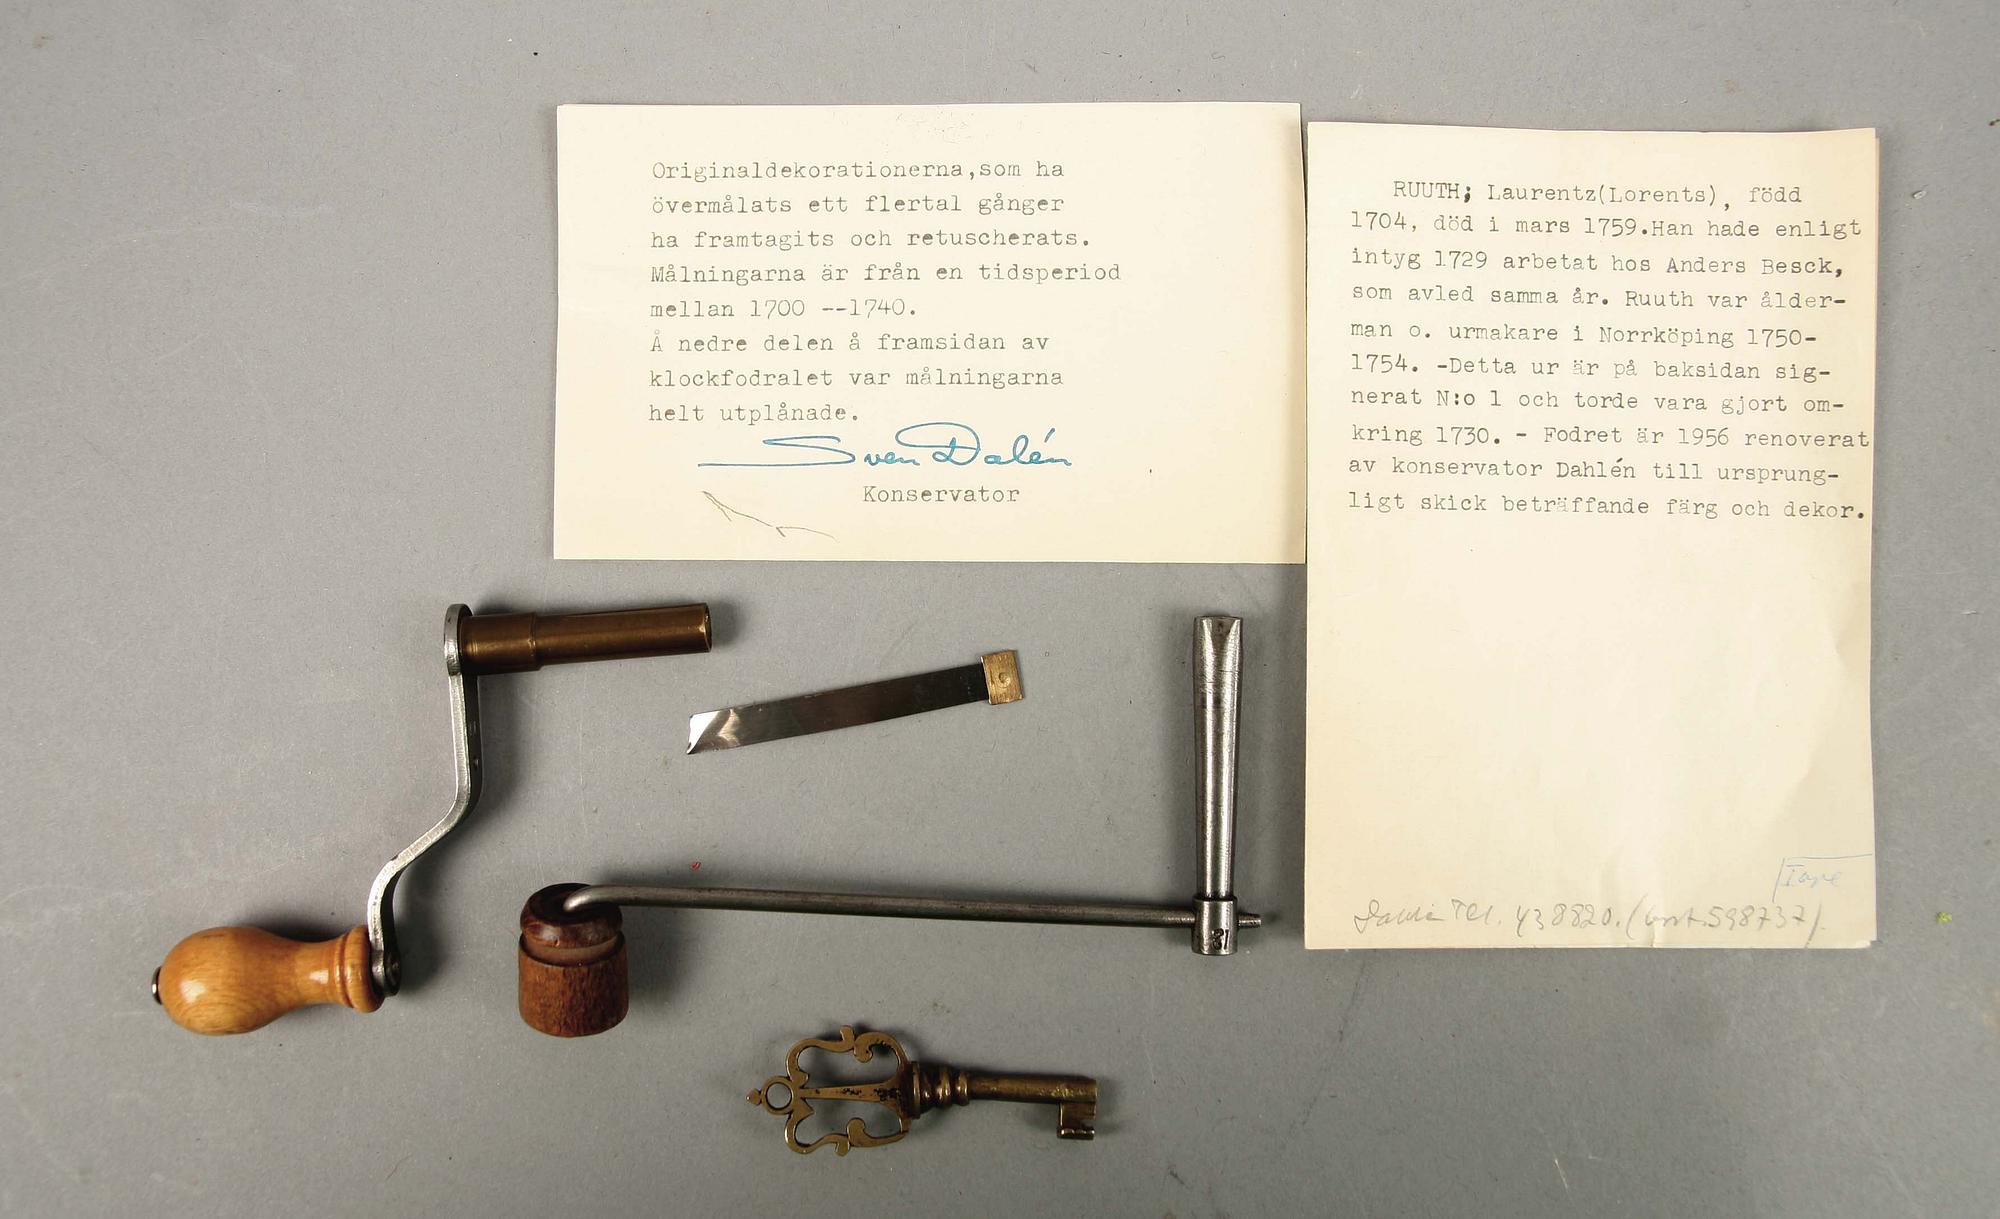 Originaldekorationerna,som ha
övermålats ett flertal gånger
ha framtagits och retuscherats.
Målningarna är från en tidsperiod
mellan 1700 --1740.
Å nedre delen å framsidan av
klockfodralet var målningarna
helt utplånade.
Sven Dalén
Konservator
RUUTH; Laurentz(Lorents), född
1704, död i mars 1759.Han hade enligt
intyg 1729 arbetat hos Anders Besck,
som avled samma år. Ruuth var ålder-
man o. urmakare i Norrköping 1750-
1754. -Detta ur är på baksidan sig-
nerat N:o 1 och torde vara gjort om-
kring 1730. - Fodret är 1956 renoverat
av konservator Dahlén till ursprung-
ligt skick beträffande färg och dekor.
Tel. 438820. 598737).